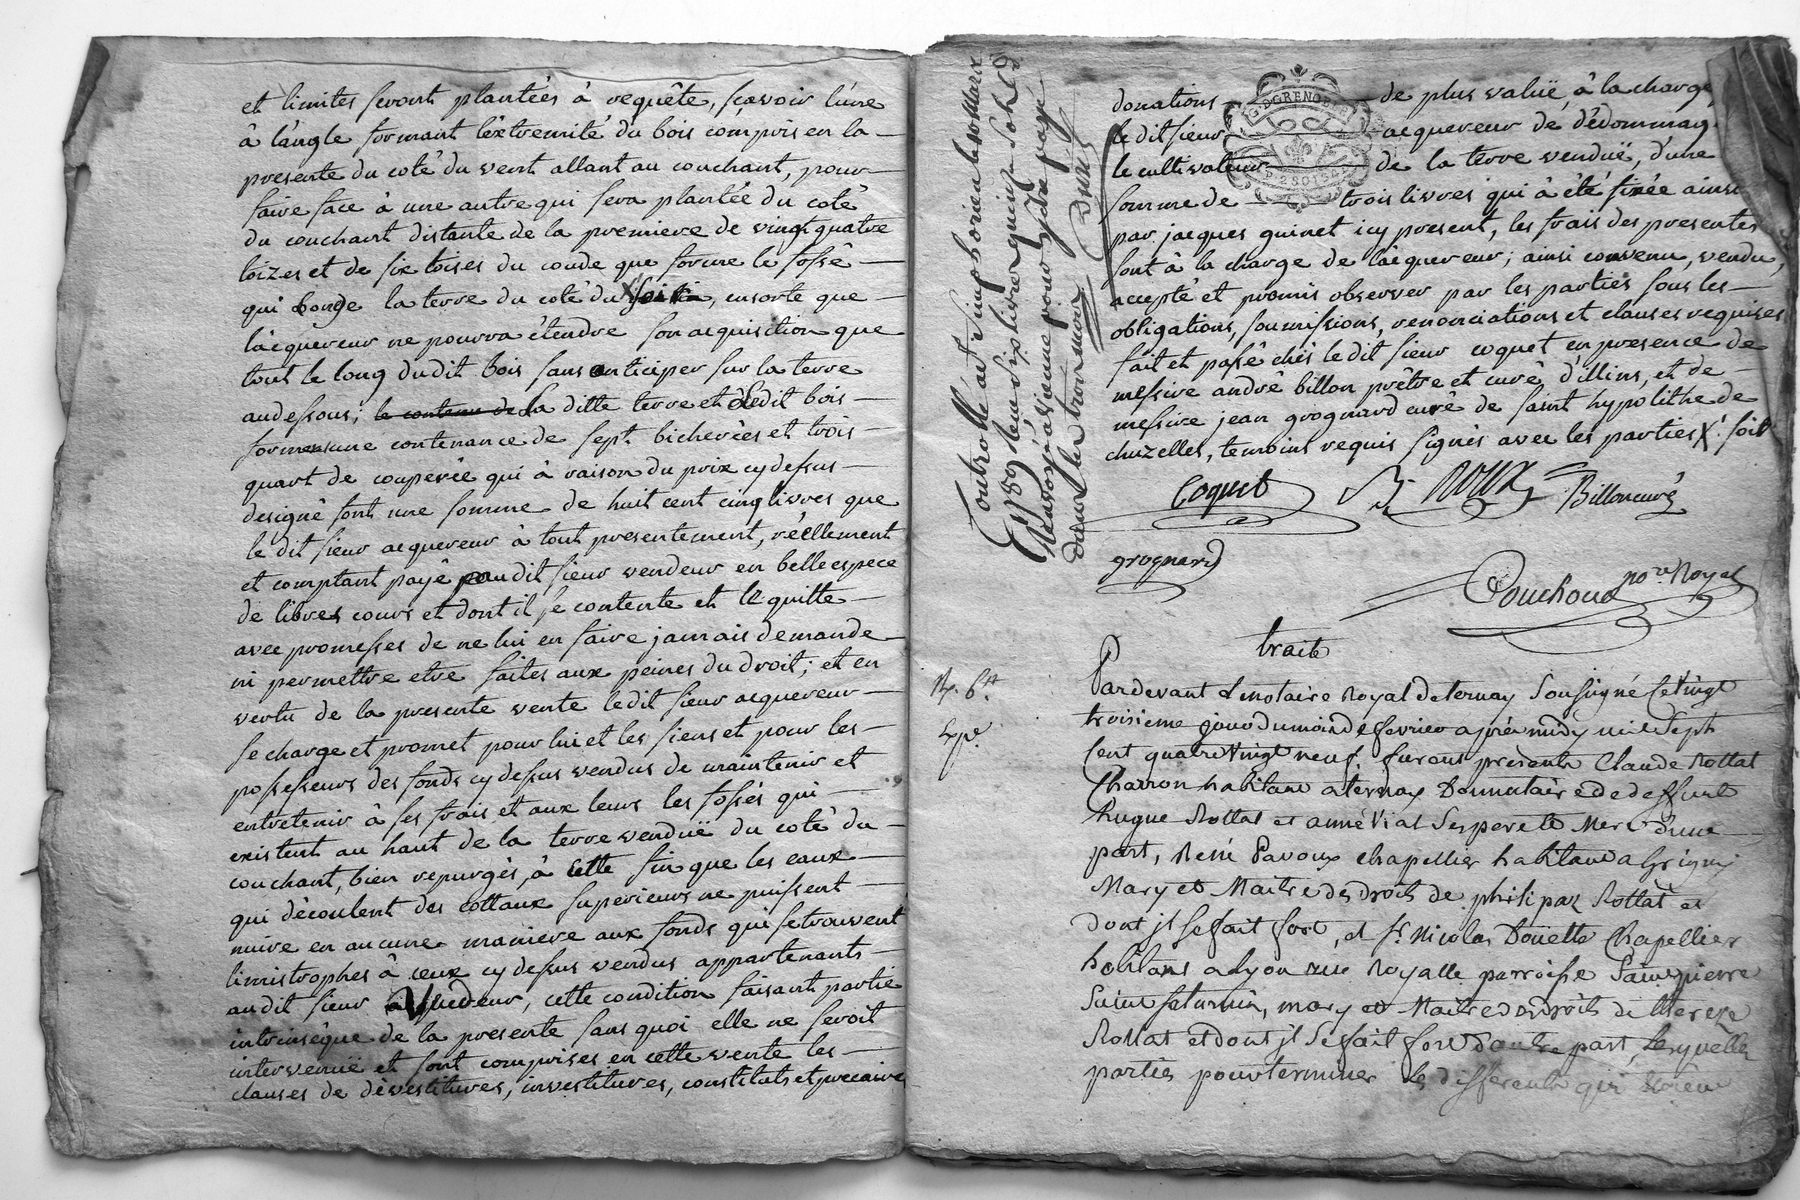 et limites seront plantées à requête, sçavoir l'une
à l'angle formant l'extremité du bois compris en la
presente du coté du vent allant au couchant, pour
faire face à une autre qui sera plantée du coté
du couchant distante de la premiere de vingt quatre
toizes et de six toises du coude que forme le fossé
qui borde la terre du coté du X, ensorte que
l'acquereur ne pourra étendre son acquisition que
tout le long dudit bois sans anticiper sur la terre
au dessous; la ditte terre et ledit bois
forment une contenance de sept bicherées et trois
quart de couperée qui à raison du prix cy dessus
designé font une somme de huit cent cinq livres que
le dit sieur acquereur à tout presentement, réellement
et comptant payé audit sieur vendeur en belle espece
de libres cours et dont il se contente et le quitte
avec promesses de ne lui en faire jamais demande
ni permettre etre faites aux peines du droit; et en
vertu de la presente vente ledit sieur acquereur
se charge et promet pour lui et les siens et pour les
possesseurs des fonds cy dessus vendus de maintenir et
entretenir à ses frais et aux leurs les fossés qui
existent au haut de la terre venduë du coté du
couchant, bien repurgés, à cette fin que les eaux
qui découlent des cottaux superieurs ne puissent
nuire en aucune maniere aux fonds qui se trouvent
limistrophes à ceux cy dessus vendus appartenants
audit sieur vendeur, cette condition faisant partie
intrinséque de la presente sans quoi elle ne seroit
intervenuë et sont comprises en cette vente les
clauses de dévestitures, investitures, constituts et precaire
donations de plus valuë, à la charge
le dit sieur acquereur de dédommag
le cultivateur de la terre venduë, d'une
somme de trois livres qui à été fixée ainsi
par jacques guinet icy present, les frais des presentes
sont à la charge de l'acquereur; ainsi convenu, vendu,
accepté et promis observer par les parties sous les
obligations, soumissions, renonciations et clauses requises
fait et passé chés le dit sieur coquet en presence de
messire andré billon prêtre et curé d'illins, et de
messire jean grognard curé de saint hypolithe de
chuzelles, temoins requis signés avec les parties X. soit
G. D GRENOBLE
Coquet
Roux
Billon curé
grognard
Couchoud no.re Royal
Controllé a
livre quinze sols
traite
Pardevant le notaire Royal de ternay soussigné le vingt
troisieme jour du mois de fevrier après midy mil sept
cent quatre vingt neuf. furent presents Claude Rottat
Charron habitant a ternay Donnataire de deffunt
hugue Rottat et anne vial ses pere et mere d'une
part, René Pavoux chapellier habitant a Grigny
Mary et Maitre des droits de philipaz Rottat et
dont jl se fait fort, et Sr. Nicolas Doüette Chapellier
habitans a Lyon rue Royalle parroisse Saint pierre
Saint saturnin, mary et Maitre des droits de therese
Rottat et dont jl se fait fort d'autre part, lesquelles
parties pour terminer les differents qui etoient